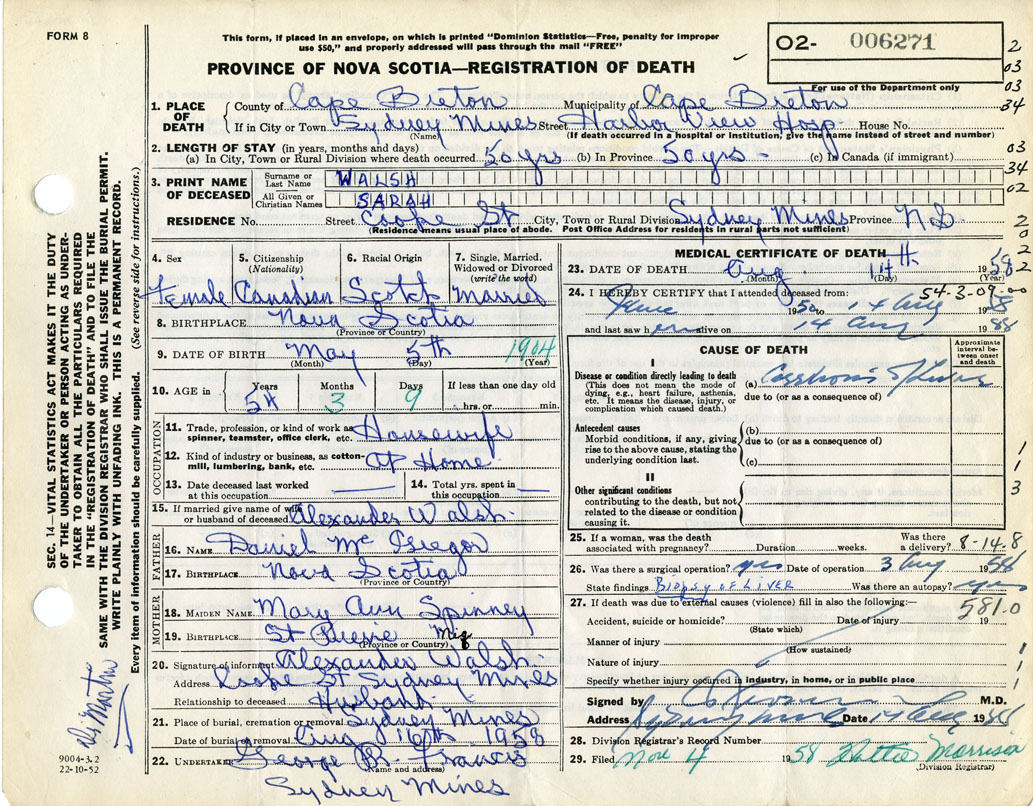 FORM 8
This form, if placed in an envelope, on which is printed "Dominion Statistics—Free, penalty for improper
use $50," and properly addressed will pass through the mail "FREE"
PROVINCE OF NOVA SCOTIA—REGISTRATION OF DEATH
02- 006271
For use of the Department only
2
03
03
34
03
34
02
2
0
2
2
1. PLACE OF DEATH
County of Cape Breton Municipality of Cape Breton
If in City or Town Sydney Mines Street Harbor View Hosp. House No.
(Name) (If death occurred in a hospital or institution, give the name instead of street and number)
2. LENGTH OF STAY (in years, months and days)
(a) In City, Town or Rural Division where death occurred 50 yrs (b) In Province 50 yrs - (c) In Canada (if immigrant)
3. PRINT NAME OF DECEASED
Surname or Last Name WALSH
All Given or Christian Names SARAH
RESIDENCE No. Street Cooke St City, Town or Rural Division Sydney Mines Province N S
(Residence means usual place of abode. Post Office Address for residents in rural parts not sufficient)
4. Sex Female
5. Citizenship (Nationality) Canadian
6. Racial Origin Scotch
7. Single, Married, Widowed or Divorced (write the word) Married
8. BIRTHPLACE Nova Scotia
(Province or Country)
9. DATE OF BIRTH May 5th 1904
(Month) (Day) (Year)
10. AGE in Years 54 Months 3 Days 9 If less than one day old
hrs. or min.
OCCUPATION
11. Trade, profession, or kind of work as spinner, teamster, office clerk, etc. Housewife
12. Kind of industry or business, as cotton-mill, lumbering, bank, etc. At Home
13. Date deceased last worked at this occupation
14. Total yrs. spent in this occupation
15. If married give name of wife or husband of deceased Alexander Walsh
FATHER
16. NAME Daniel McGregor
17. BIRTHPLACE Nova Scotia
(Province or Country)
MOTHER
18. MAIDEN NAME Mary Ann Spinney
19. BIRTHPLACE St Pierre Miq
(Province or Country)
20. Signature of informant Alexander Walsh
Address Cooke St Sydney Mines
Relationship to deceased Husband
21. Place of burial, cremation or removal Sydney Mines
Date of burial or removal Aug 16th 1958
22. UNDERTAKER George B. Francis
(Name and address)
Sydney Mines
MEDICAL CERTIFICATE OF DEATH
23. DATE OF DEATH Aug 14th 1958
(Month) (Day) (Year)
54-3-09-00
24. I HEREBY CERTIFY that I attended deceased from:
June 1950 to 14 Aug 1958
and last saw her alive on 14 Aug 1958
CAUSE OF DEATH
Approximate interval between onset and death
I
Disease or condition directly leading to death
(This does not mean the mode of dying, e.g., heart failure, asthenia, etc. It means the disease, injury, or complication which caused death.)
(a) Cirrhosis of Liver
due to (or as a consequence of)
Antecedent causes
Morbid conditions, if any, giving rise to the above cause, stating the underlying condition last.
(b)
due to (or as a consequence of)
(c)
II
Other significant conditions
contributing to the death, but not related to the disease or condition causing it.
1
1
3
25. If a woman, was the death associated with pregnancy? Duration weeks. Was there a delivery? 8-14-8
26. Was there a surgical operation? yes Date of operation 3 Aug 1958
State findings Biopsy of Liver Was there an autopsy? yes
27. If death was due to external causes (violence) fill in also the following:— 581.0
Accident, suicide or homicide? Date of injury 19
(State which)
Manner of injury
(How sustained)
Nature of injury
Specify whether injury occurred in industry, in home, or in public place
1
1
Signed by M.D.
Address Sydney Mines Date 14 Aug 1958
28. Division Registrar's Record Number
29. Filed Nov 4 1958 Hattie Morrison
(Division Registrar)
SEC. 14—VITAL STATISTICS ACT MAKES IT THE DUTY
OF THE UNDERTAKER OR PERSON ACTING AS UNDER-
TAKER TO OBTAIN ALL THE PARTICULARS REQUIRED
IN THE "REGISTRATION OF DEATH" AND TO FILE THE
SAME WITH THE DIVISION REGISTRAR WHO SHALL ISSUE THE BURIAL PERMIT.
WRITE PLAINLY WITH UNFADING INK. THIS IS A PERMANENT RECORD.
Every item of information should be carefully supplied. (See reverse side for instructions.)
9004-3.2
22-10-52